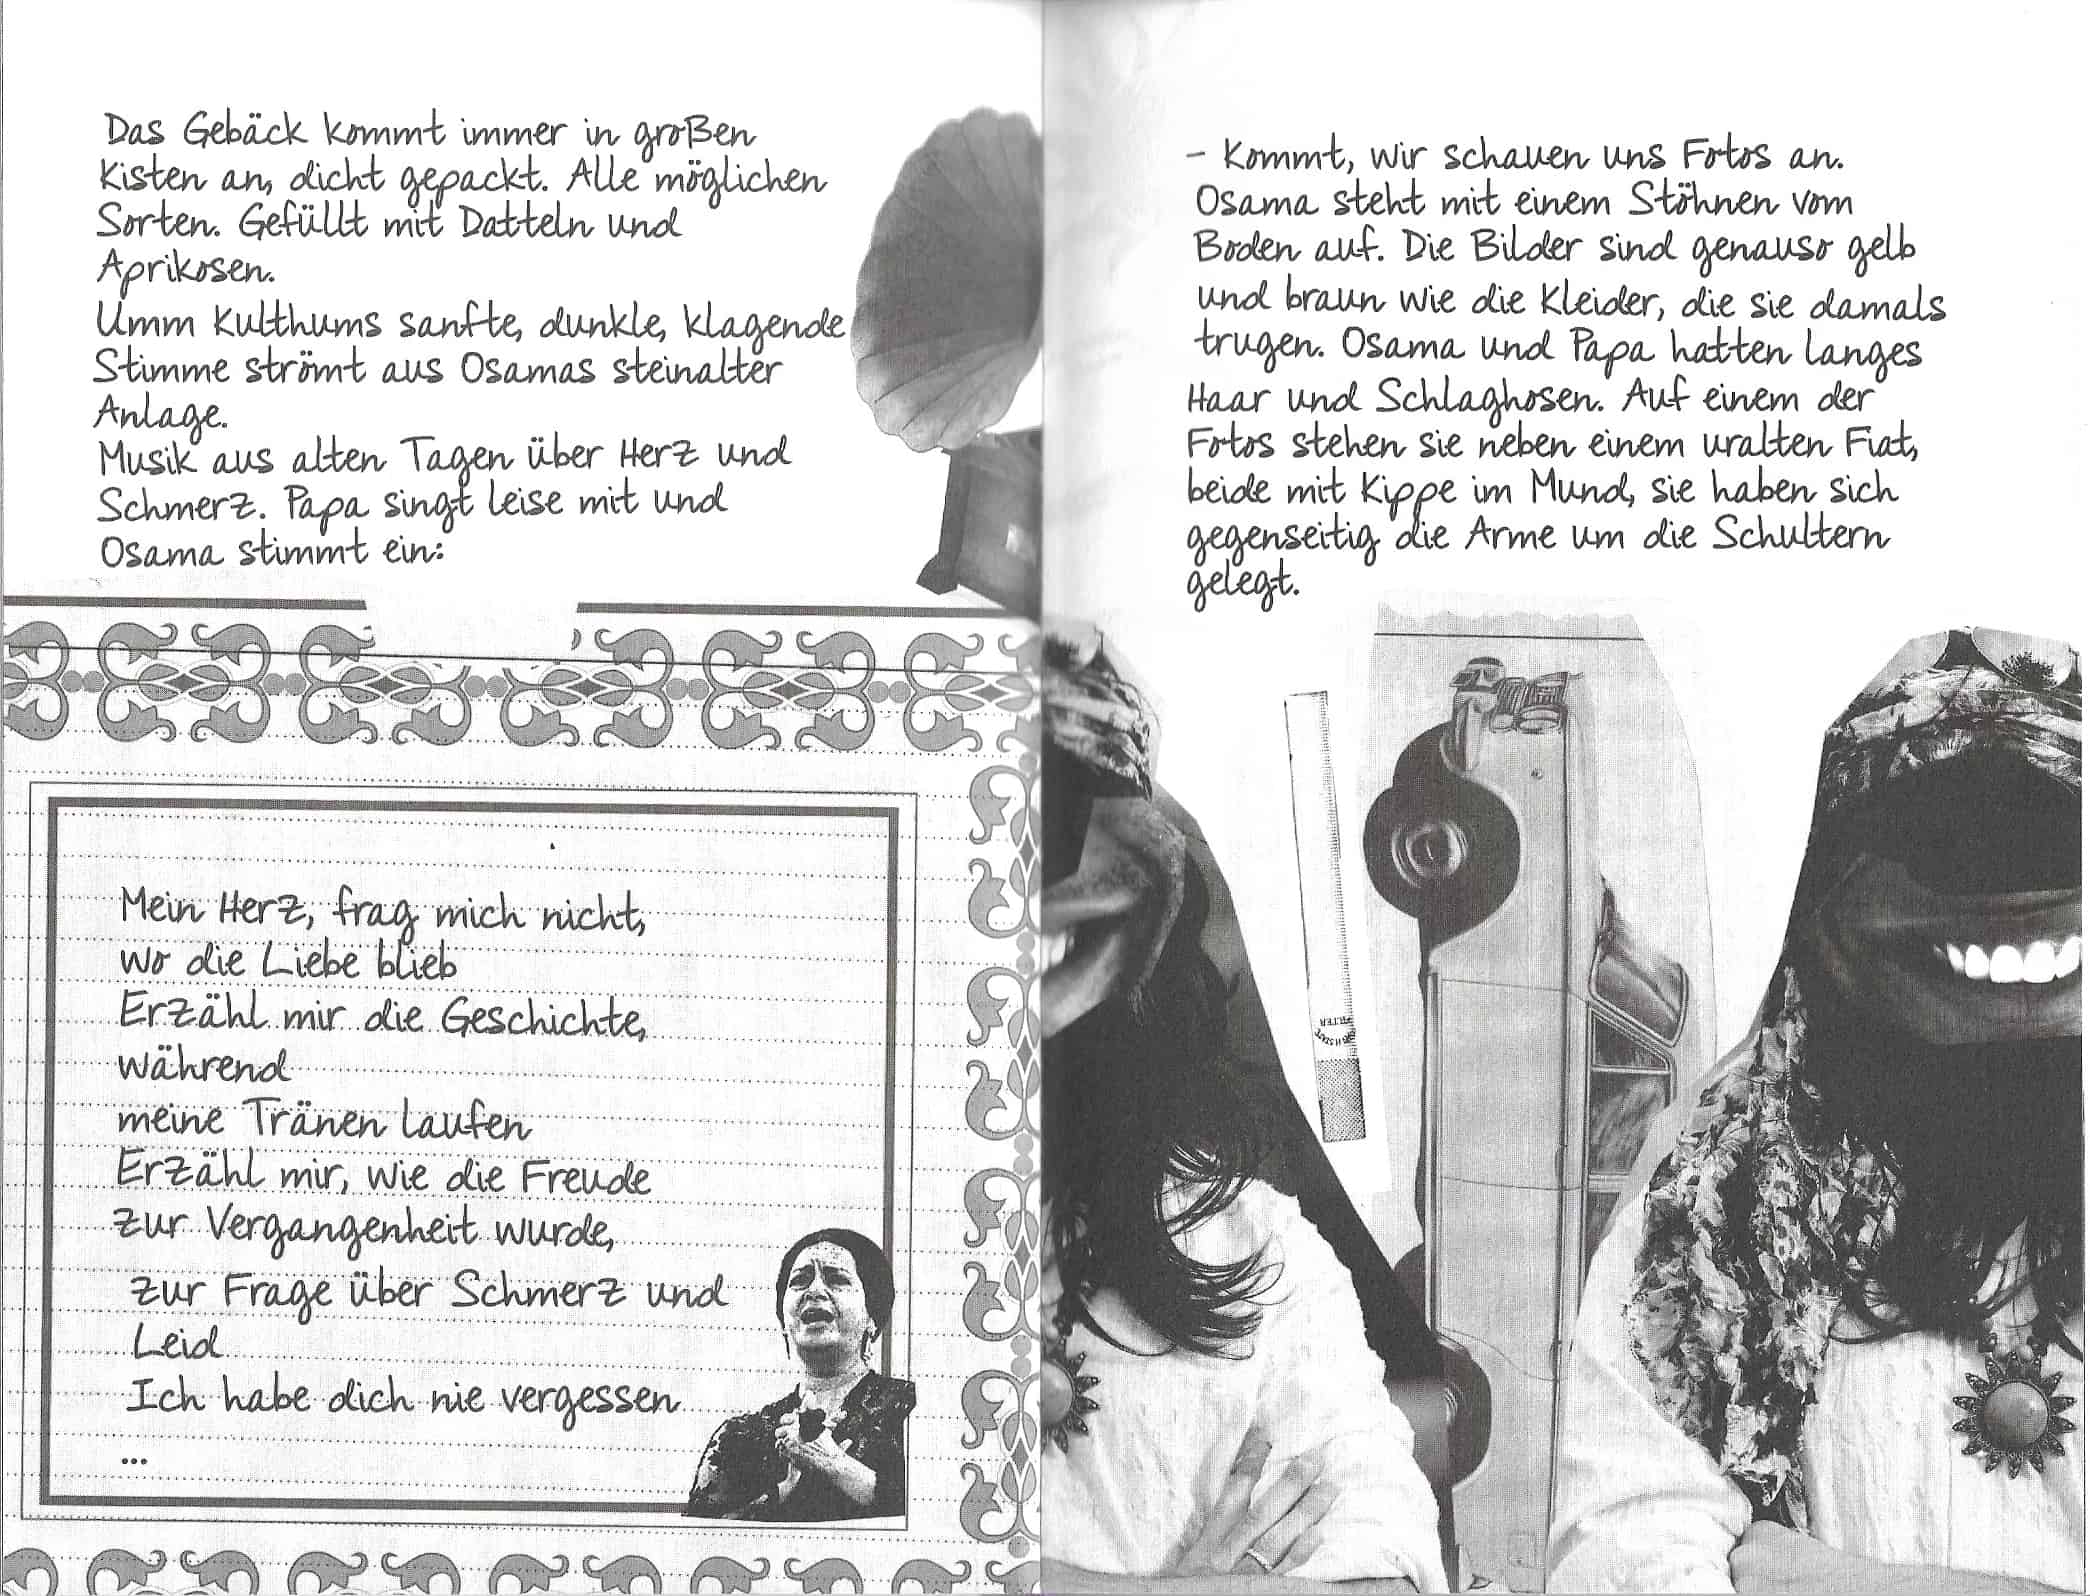 Das Gebäck kommt immer in großen
Kisten an, dicht gepackt. Alle möglichen
Sorten. Gefüllt mit Datteln und
Aprikosen.
Umm Kulthums sanfte, dunkle, klagende
Stimme strömt aus Osamas steinalter
Anlage.
Musik aus alten Tagen über Herz und
Schmerz. Papa singt leise mit und
Osama stimmt ein:
Mein Herz, frag mich nicht,
wo die Liebe blieb
Erzähl mir die Geschichte,
während
meine Tränen laufen
Erzähl mir, wie die Freude
zur Vergangenheit wurde,
zur Frage über Schmerz und
Leid
Ich habe dich nie vergessen
...
- Kommt, wir schauen uns Fotos an.
Osama steht mit einem Stöhnen vom
Boden auf. Die Bilder sind genauso gelb
und braun wie die Kleider, die sie damals
trugen. Osama und Papa hatten langes
Haar und Schlaghosen. Auf einem der
Fotos stehen sie neben einem uralten Fiat,
beide mit Kippe im Mund, sie haben sich
gegenseitig die Arme um die Schultern
gelegt.
FILTER